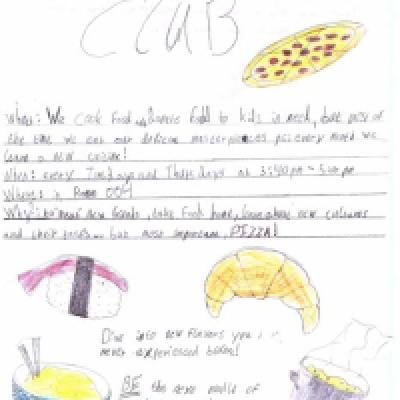 CLUB
What: We cook food and donate food to kids in need, but most of
the time we eat our delicious masterpieces psl every month we
learn a new cuisine!
When: every Tuesdays and Thursdays at 3:40 pm - 5:00 pm
Where: in Room 004
Why: to meet new friends, take food home, learn about new cultures
and their foods... but most important, PIZZA!
Dive into new flavors you
never experienced before!
BE the next master of